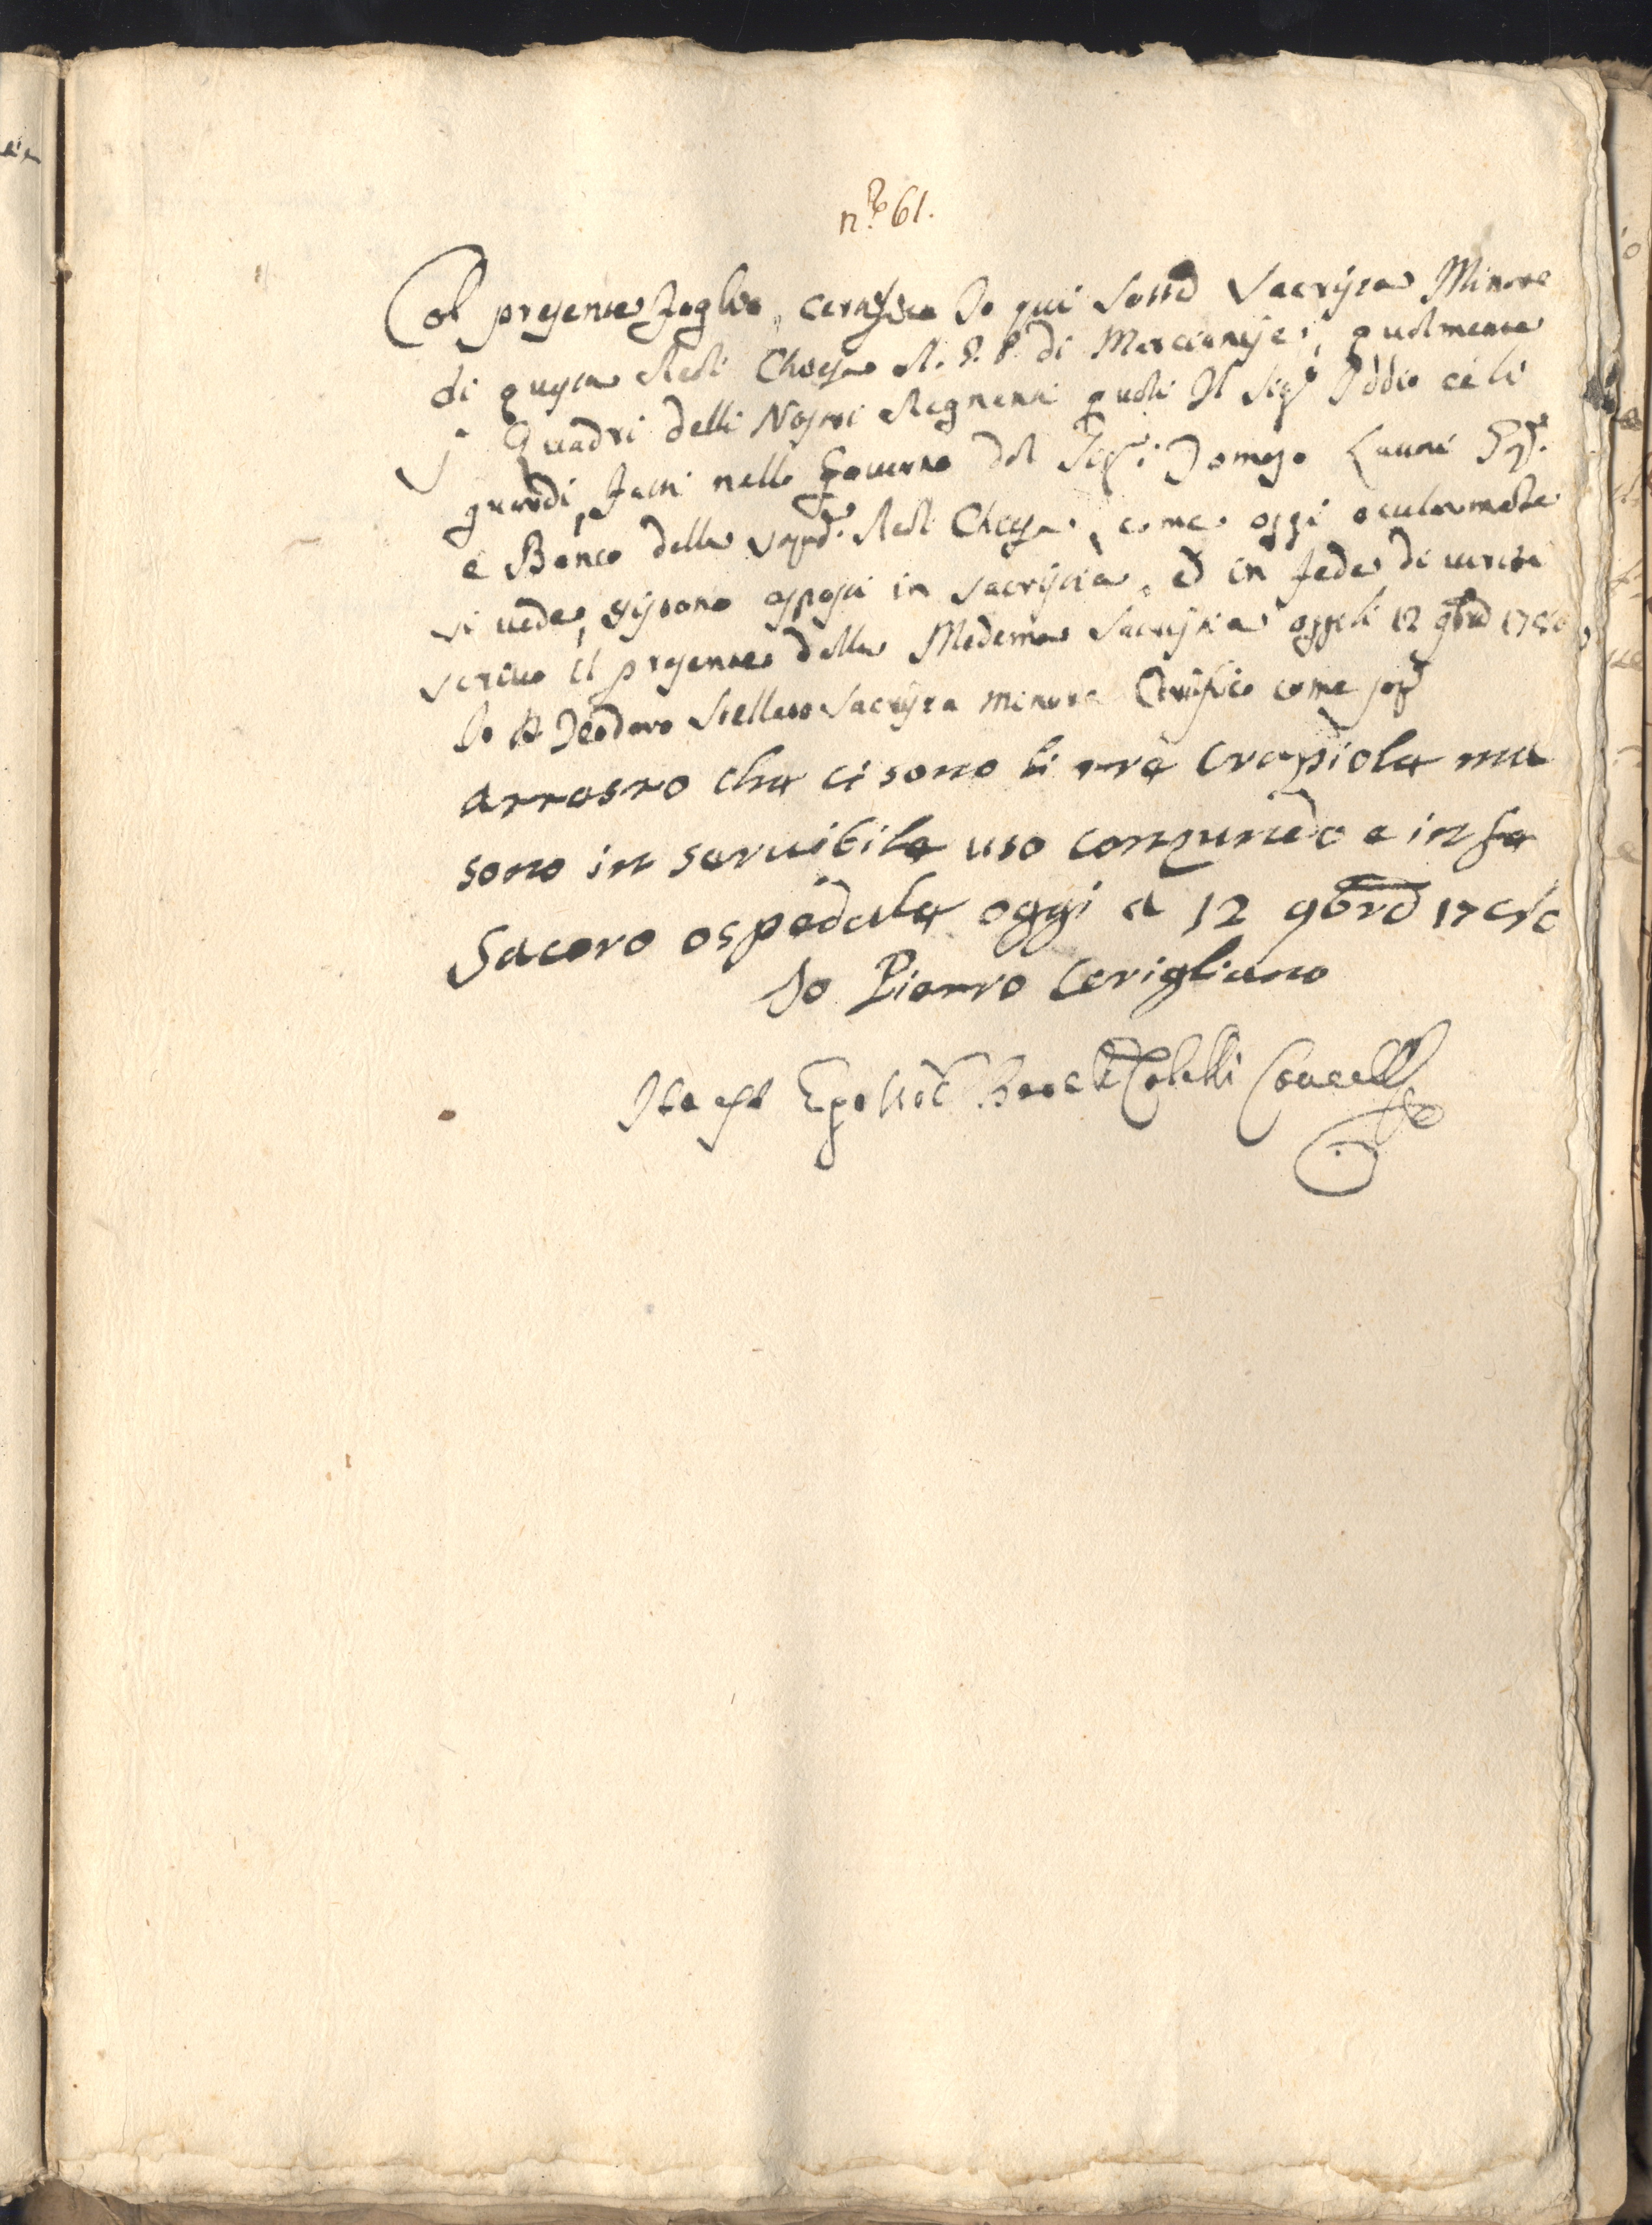 n.ro 61.
Col presente foglio, certifico Io qui sott.o Sacrista Minore
di questa Real Chiesa A. G. P. di Marcianise, qualmente
i Quadri delli Nostri Regnanti quali Il Sig.r Iddio celi
guardi, fatti nello Governo del Sig.r Tomaso Laurē
e Banco della sopad.a Real Chiesa, come oggi ocularmēte
si vede, si sono esposti in sacristia, ed in fede di verità
scrivo il presente della Medema Sacristia oggi li 12 9bre
Io D. Teodoro Stellato Sacrista minore Certifico come sop.a
attesto che ci sono li tre crapiole ma
sono in servibile uso conzumēdo e in fe
Sacoro ospedale oggi a 12 9bre
Io Pietro Cerigliano
Ita est Ego Not.s Colelli